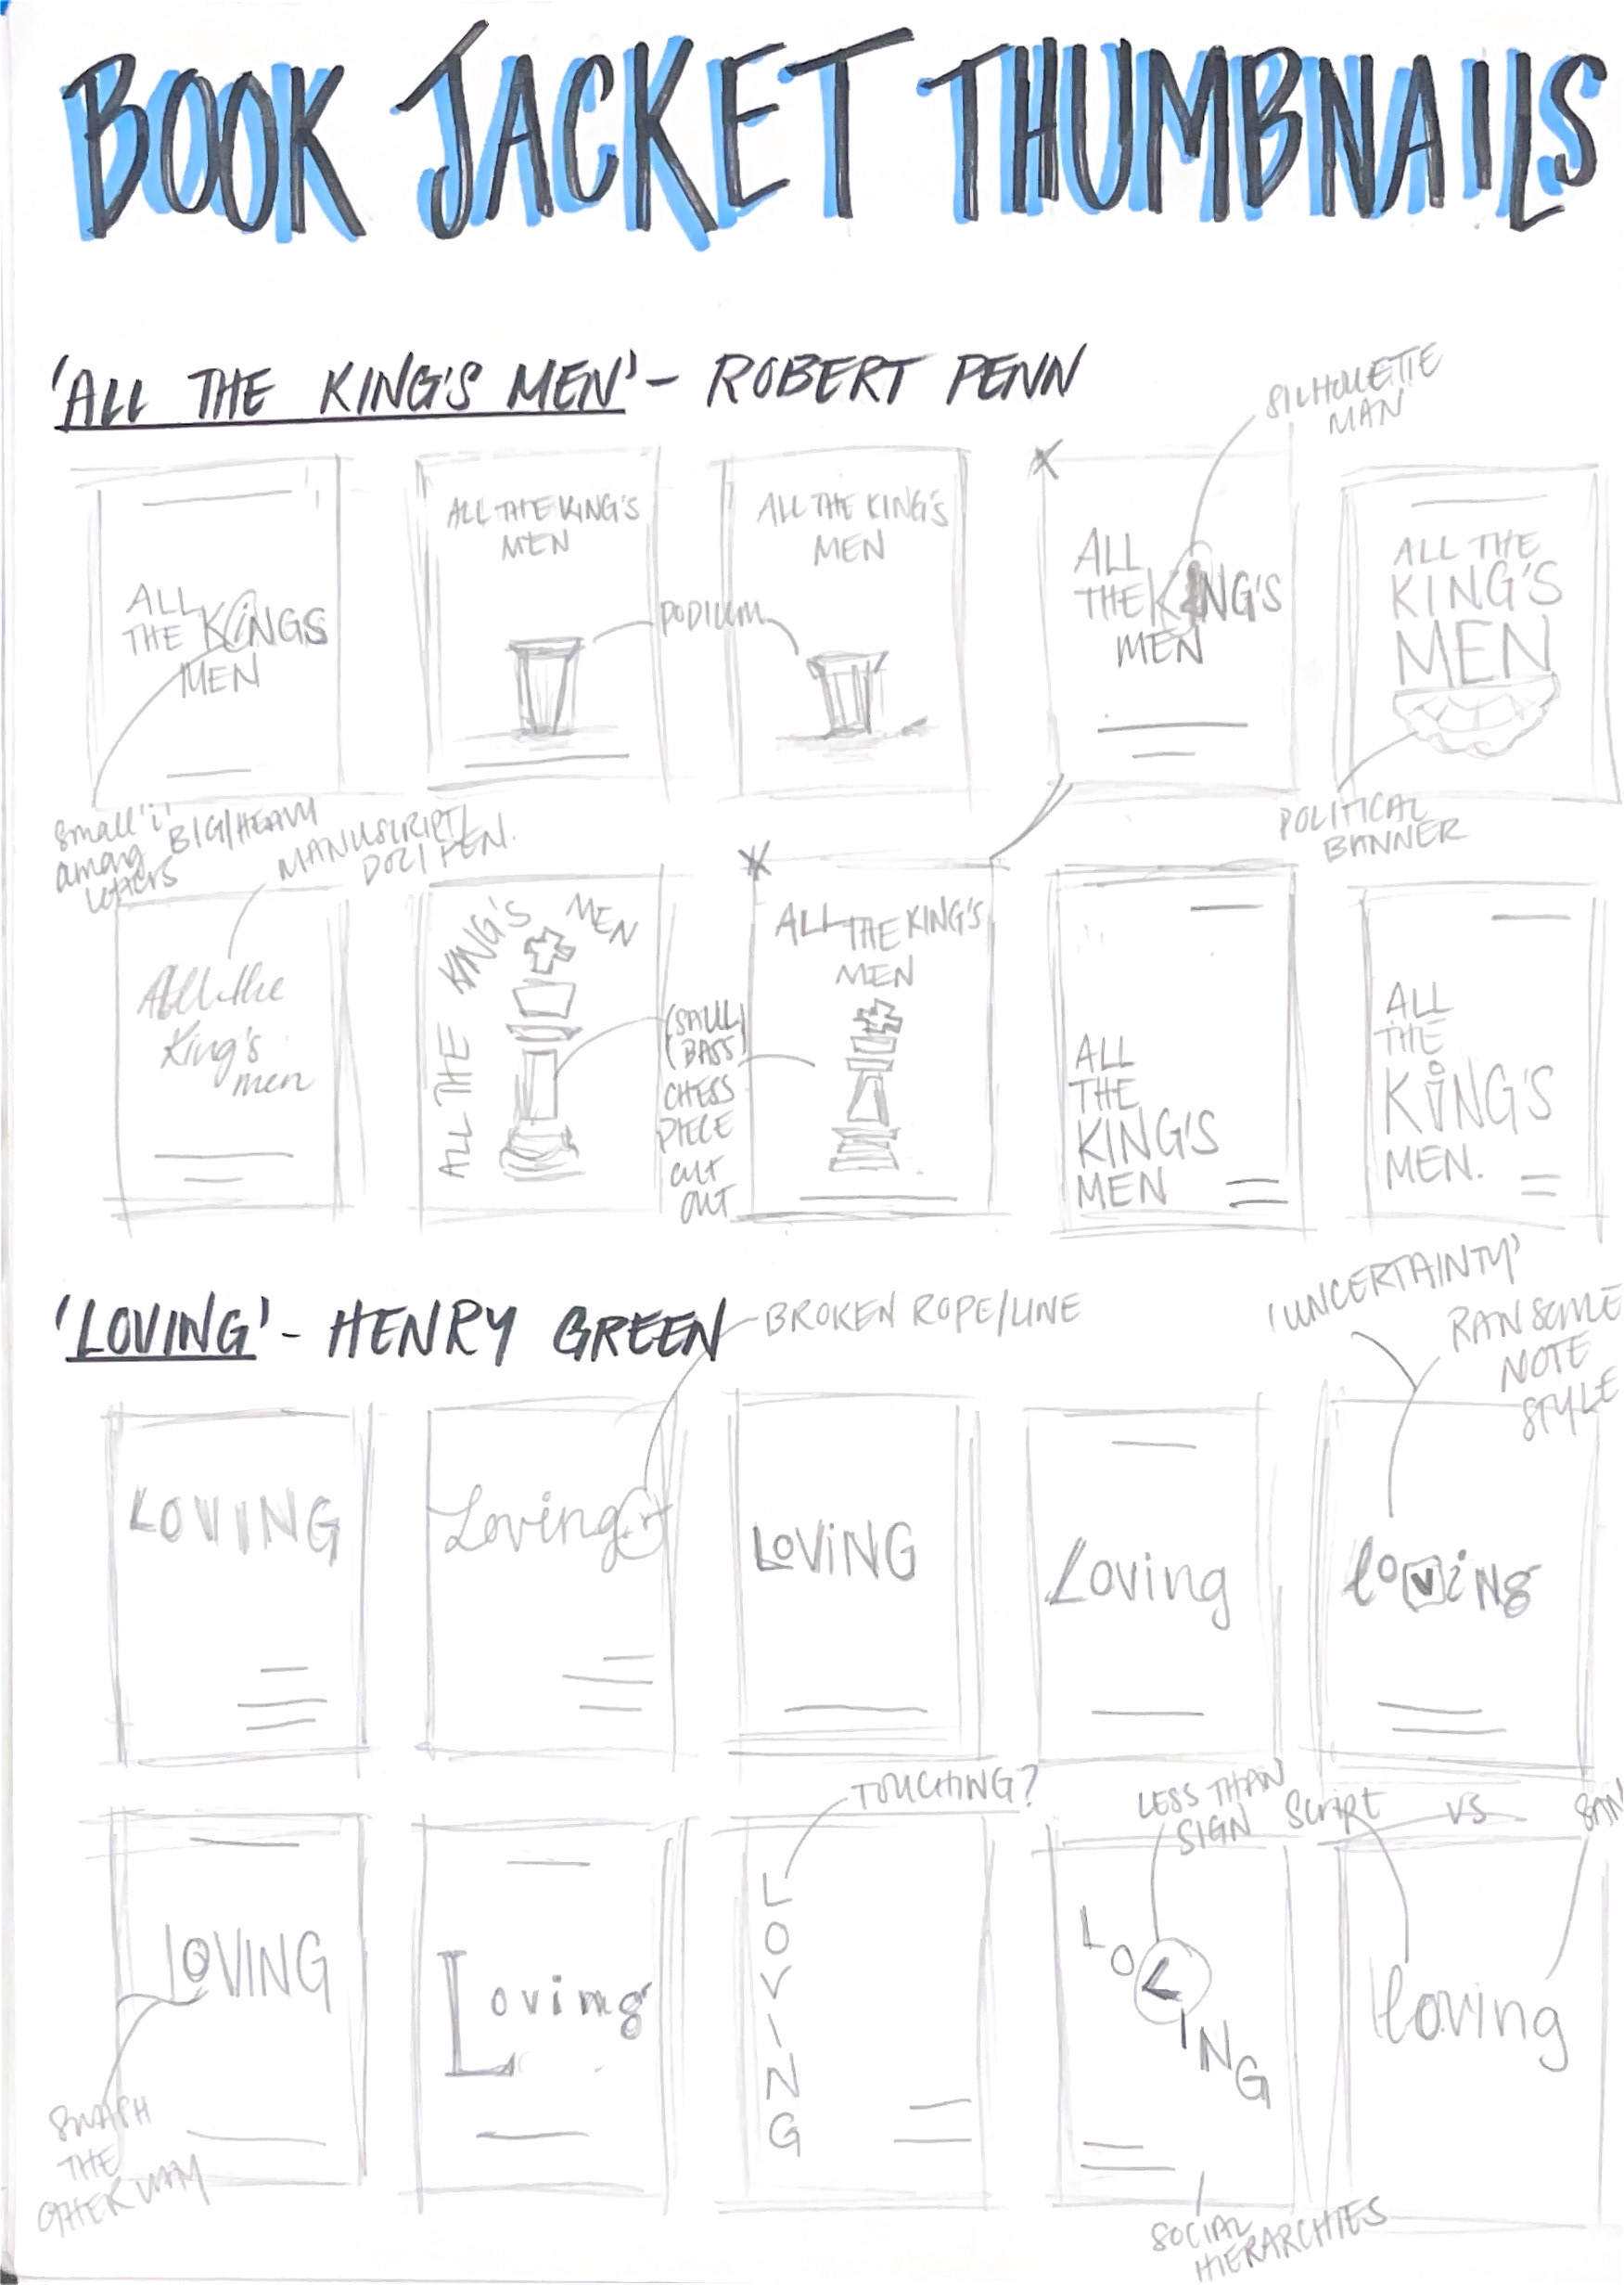 BOOK JACKET THUMBNAILS
'ALL THE KING'S MEN' - ROBERT PENN
SILHOUETTE
MAN
ALL
THE KiNGS
MEN
ALL THE KING'S
MEN
PODIUM
ALL THE KING'S
MEN
ALL
THE KING'S
MEN
ALL THE
KING'S
MEN
Small 'i'
among BIG/HEAVY
letters
MANUSCRIPT/
PEN.
POLITICAL
BANNER
All the
King's
men
ALL THE KING'S MEN
(SAUL
BASS)
CHESS
PIECE
CUT
OUT
ALL THE KING'S
MEN
ALL
THE
KING'S
MEN
ALL
THE
KiNG'S
MEN.
'LOVING' - HENRY GREEN
BROKEN ROPE/LINE
'UNCERTAINTY'
RANSOME
NOTE
STYLE
LOVING
Loving
LOViNG
Loving
loviNg
TOUCHING?
LESS THAN
SIGN
Script vs
LOVING
THE
OTHER WAY
Loving
L
O
V
I
N
G
L
O
<
I
N
G
SOCIAL
HIERARCHIES
loving